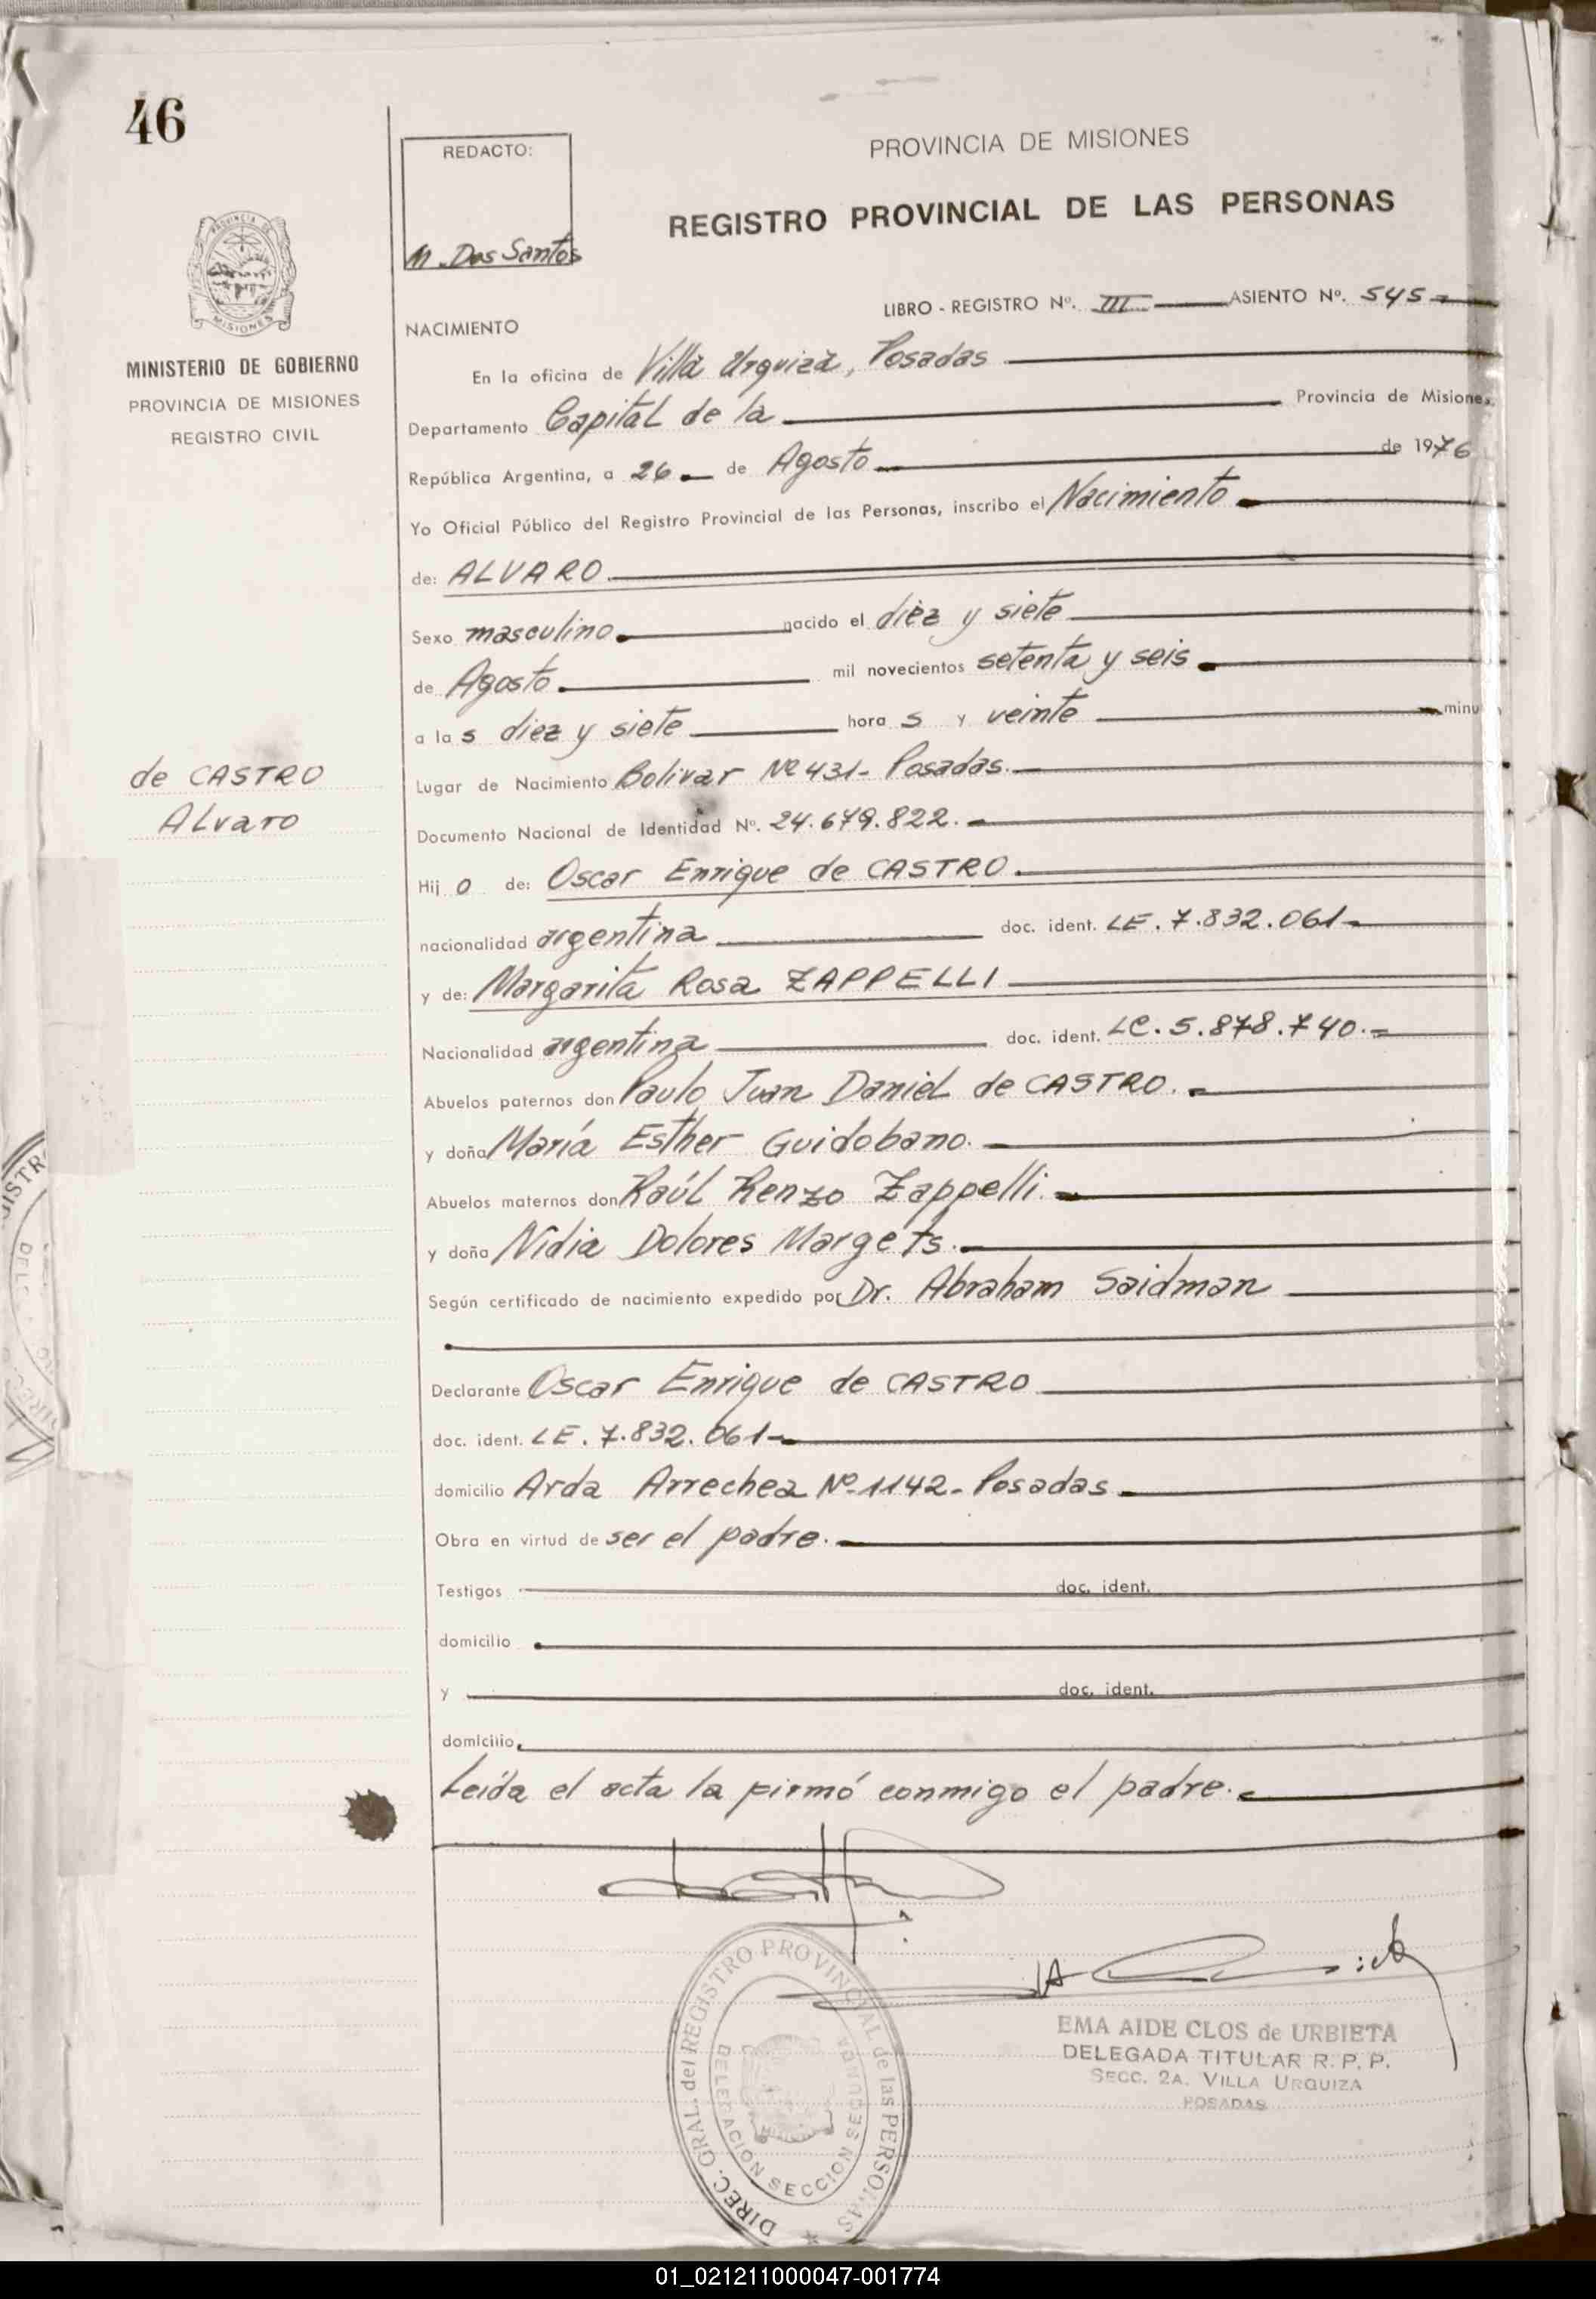 46
REDACTO:
M. Dos Santos
PROVINCIA DE MISIONES
REGISTRO PROVINCIAL DE LAS PERSONAS
LIBRO - REGISTRO Nº. III ASIENTO Nº. 545
MINISTERIO DE GOBIERNO
PROVINCIA DE MISIONES
REGISTRO CIVIL
NACIMIENTO
En la oficina de Villa Urquiza, Posadas
Departamento Capital de la Provincia de Misiones,
República Argentina, a 26 de Agosto de 1976
Yo Oficial Público del Registro Provincial de las Personas, inscribo el Nacimiento
de: ALVARO
Sexo masculino nacido el diez y siete
de Agosto mil novecientos setenta y seis
a las diez y siete horas y veinte minu
de CASTRO
Alvaro
Lugar de Nacimiento Bolivar Nº 431- Posadas.
Documento Nacional de Identidad Nº. 24.679.822.
Hijo de: Oscar Enrique de CASTRO.
nacionalidad argentina doc. ident. LE. 7.832.061-
y de: Margarita Rosa ZAPPELLI
Nacionalidad argentina doc. ident. LC. 5.878.740.-
Abuelos paternos don Paulo Juan Daniel de CASTRO.
y doña María Esther Guidobono.
Abuelos maternos don Raúl Renzo Zappelli.
y doña Nidia Dolores Margets.
Según certificado de nacimiento expedido por Dr. Abraham Saidman
Declarante Oscar Enrique de CASTRO
doc. ident. LE. 7.832.061-
domicilio Arda Arrechea Nº-1142- Posadas
Obra en virtud de ser el padre.
Testigos doc. ident.
domicilio
y doc. ident.
domicilio
Leída el acta la firmó conmigo el padre.
DIREC. GRAL. del REGISTRO PROVINCIAL de las PERSONAS
DELEGACION SECCION SEGUNDA
EMA AIDE CLOS de URBIETA
DELEGADA TITULAR R. P. P.
SECC. 2A. VILLA URQUIZA
POSADAS
01_021211000047-001774